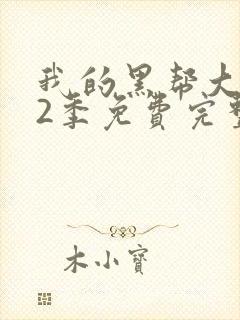 我的黑帮大
2季免费完整
木小寶